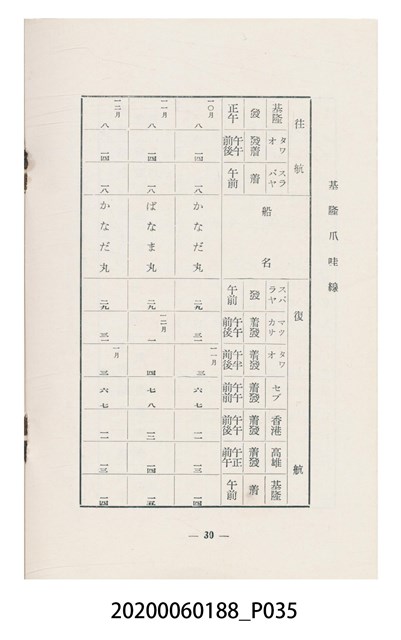 基隆爪哇線
往航 船名 復航
基隆 タワオ スラバヤ スラバヤ マカツサ タワオ セブ 香港 高雄 基隆
發 發著 著 發 發著 發著 發著 發著 發著 著
正午 午前 午後 午前 午前 午前 午後 午前 午後 午前 午前 午前 午後 午前 正午 午前
一〇月 八 一四 一八 かなだ丸 二九 三一 一一月 三 六 七 一二 一三 一四
一一月 八 一四 一八 ばなま丸 二九 一二月 一 四 七 八 一三 一四 一五
一二月 八 一四 一八 かなだ丸 二九 三一 一月 三 六 七 一二 一三 一四
— 30 —
20200060188_P035